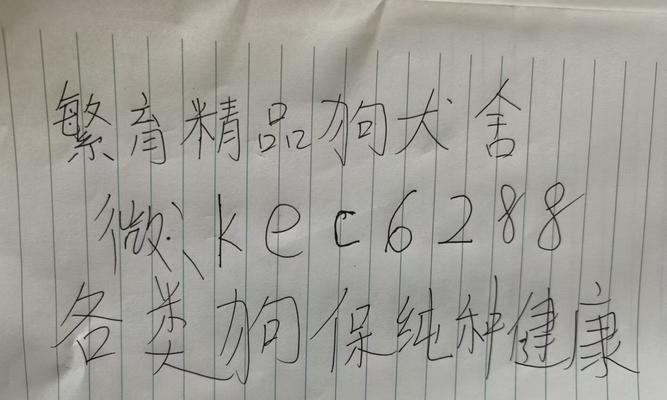 繁育精品狗犬舍
微、kec6288
各类狗保纯种健康